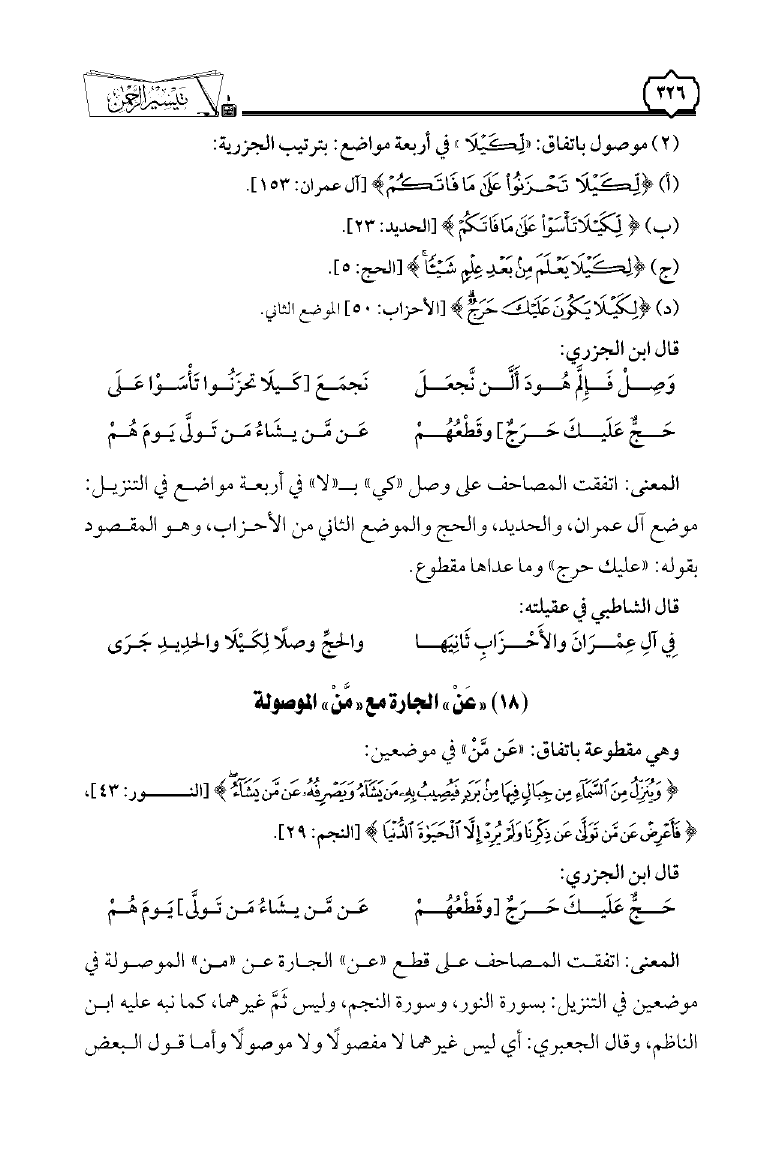 ٣٢٦
تيسير الرحمن
(٢) موصول باتفاق: «لِّكَيْلَا» في أربعة مواضع: بترتيب الجزرية:
(أ) ﴿لِّكَيْلَا تَحْزَنُوا۟ عَلَىٰ مَا فَاتَكُمْ﴾ [آل عمران: ١٥٣].
(ب) ﴿لِّكَيْلَا تَأْسَوْا۟ عَلَىٰ مَا فَاتَكُمْ﴾ [الحديد: ٢٣].
(ج) ﴿لِكَيْلَا يَعْلَمَ مِنۢ بَعْدِ عِلْمٍ شَيْـًٔا ۚ﴾ [الحج: ٥].
(د) ﴿لِكَيْلَا يَكُونَ عَلَيْكَ حَرَجٌ ۗ﴾ [الأحزاب: ٥٠] الموضع الثاني.
قال ابن الجزري:
وَصِلْ فَإِلَّمْ هُودَ أَلَّن نَّجعَلَ نَجمَعَ [كَيلَا تحزَنُوا تَأْسَوْا عَلَى
حَجٌّ عَلَيكَ حَرَجٌ] وقَطْعُهُمْ عَن مَّن يشَاءُ مَن تَولَّى يَومَ هُمْ
المعنى: اتفقت المصاحف على وصل «كي» بـ«لا» في أربعة مواضع في التنزيل:
موضع آل عمران، والحديد، والحج والموضع الثاني من الأحزاب، وهو المقصود
بقوله: «عليك حرج» وما عداها مقطوع.
قال الشاطبي في عقيلته:
فِي آلِ عِمْرَانَ والأَحْزَابِ ثَانِيَهَا والحَجِّ وصلًا لِكَيْلَا والحَدِيدِ جَرَى
(١٨) «عَنْ» الجارة مع «مَّنْ» الموصولة
وهي مقطوعة باتفاق: «عَن مَّنْ» في موضعين:
﴿وَيُنَزِّلُ مِنَ ٱلسَّمَآءِ مِن جِبَالٍ فِيهَا مِنۢ بَرَدٍ فَيُصِيبُ بِهِۦ مَن يَشَآءُ وَيَصْرِفُهُۥ عَن مَّن يَشَآءُ ۖ﴾ [النور: ٤٣]،
﴿فَأَعْرِضْ عَن مَّن تَوَلَّىٰ عَن ذِكْرِنَا وَلَمْ يُرِدْ إِلَّا ٱلْحَيَوٰةَ ٱلدُّنْيَا﴾ [النجم: ٢٩].
قال ابن الجزري:
حَجٌّ عَلَيكَ حَرَجٌ [وقَطْعُهُمْ عَن مَّن يشَاءُ مَن تَولَّى] يَومَ هُمْ
المعنى: اتفقت المصاحف على قطع «عن» الجارة عن «من» الموصولة في
موضعين في التنزيل: بسورة النور، وسورة النجم، وليس ثَمَّ غيرهما، كما نبه عليه ابن
الناظم، وقال الجعبري: أي ليس غيرهما لا مفصولًا ولا موصولًا وأما قول البعض